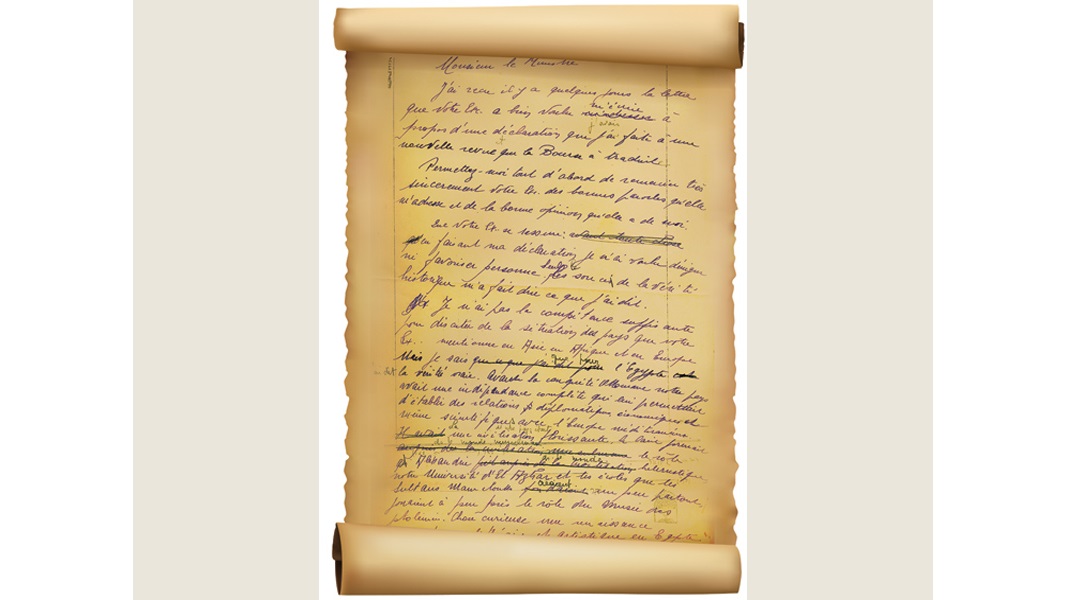 Monsieur le Ministre
J'ai reçu il y a quelques jours la lettre
que Votre Ex. a bien voulu m'écrire à
propos d'une déclaration que j'ai faite à une
nouvelle revue que la Bourse a traduite.
Permettez-moi tout d'abord de remercier très
sincèrement Votre Ex. des bonnes paroles qu'elle
m'adresse et de la bonne opinion qu'elle a de moi.
Que Votre Ex. se rassure:
en faisant ma déclaration je n'ai voulu dénigrer
ni favoriser personne. Seul le souci de la vérité
historique m'a fait dire ce que j'ai dit.
Je n'ai pas la compétence suffisante
pour discuter de la situation des pays que votre
Ex. mentionne en Asie en Afrique et en Europe
Mais je sais que pour l'Egypte
la vérité vraie. Avant la conquête Ottomane notre pays
avait une indépendance complète qui lui permettait
d'établir des relations diplomatiques économiques et
même scientifiques avec l'Europe méditerranéenne
une civilisation florissante
le rôle
d'Alexandrie hellénistique
notre Université d'El Azhar et les écoles que les
Sultans Mamelouks avaient un peu partout
jouaient à peu près le rôle du Musée des
ptolémées. Chose curieuse une renaissance
et artistique en Egypte